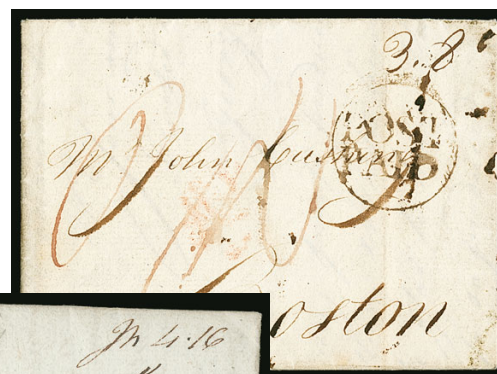 3.8
POST
PAID
Mr John Cushing
oston
4.16